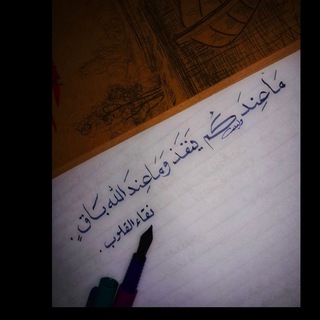 مَا عِندَكُم يَنفَذ وَمَا عِندَ اللّٰه بَاقٍ.
نقاء القلوب.